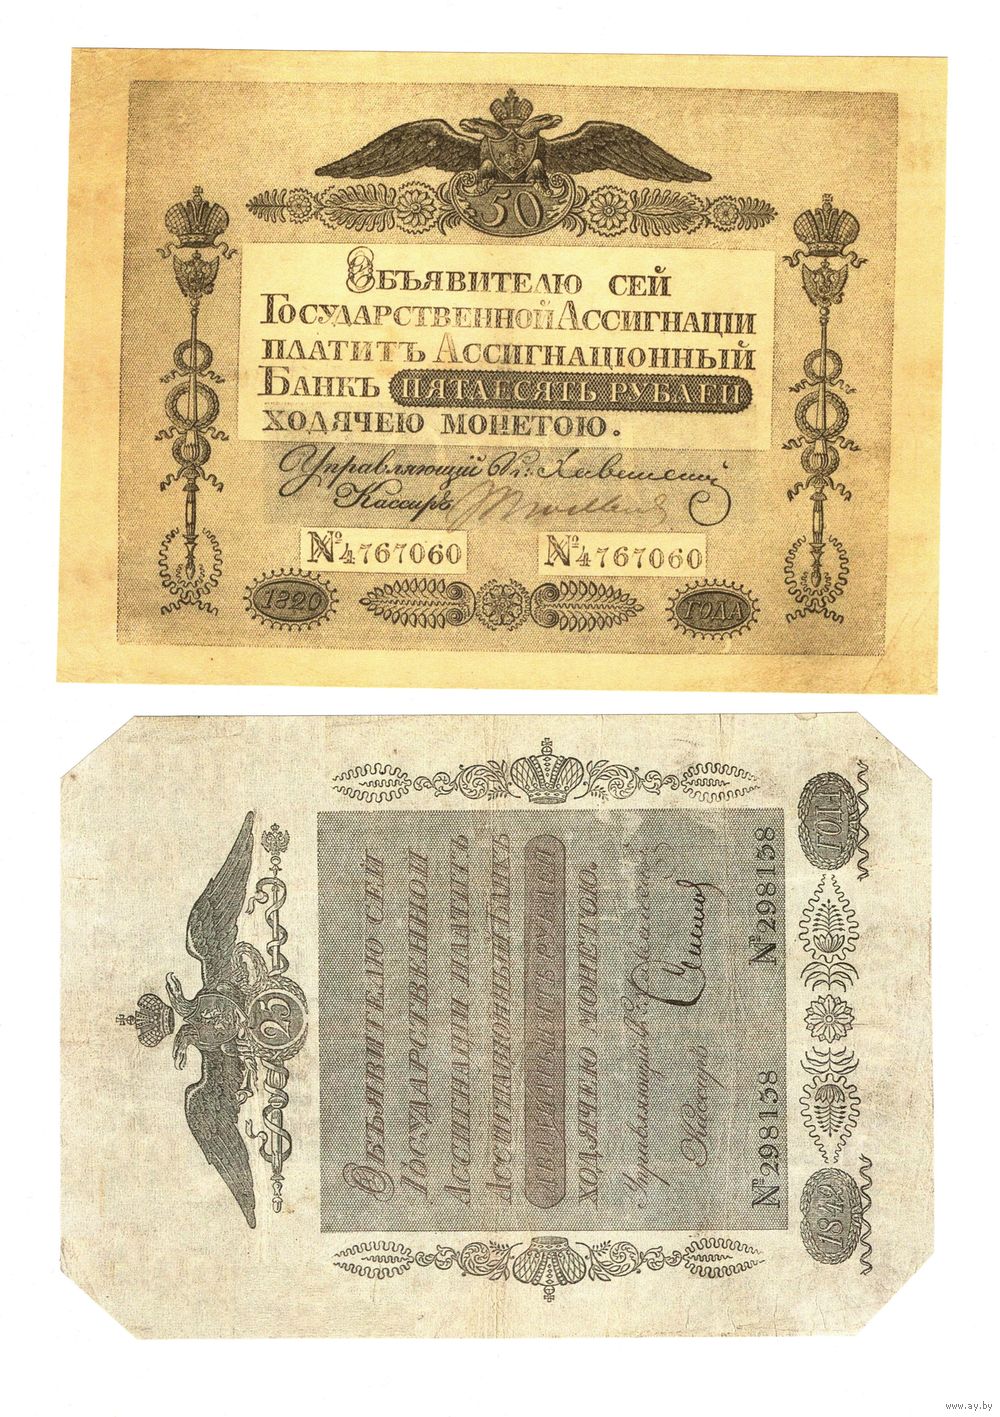 50
Объявителю сей
Государственной Ассигнации
платитъ Ассигнационный
Банкъ пятдесять рублей
ходячею монетою.
Управляющий
Кассиръ
№ 4767060 № 4767060
1820 года
25
Объявителю сей
Государственной
Ассигнацiи платитъ
Ассигнацiонный Банкъ
двадцать пять рублей
ходячею монетою.
Управляющий
Кассиръ
№ 298138 № 298138
1842 года
www.ay.by